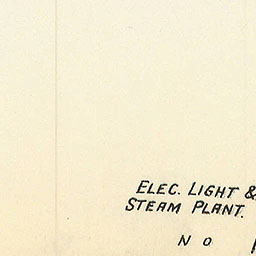 ELEC. LIGHT &
STEAM PLANT.
N O